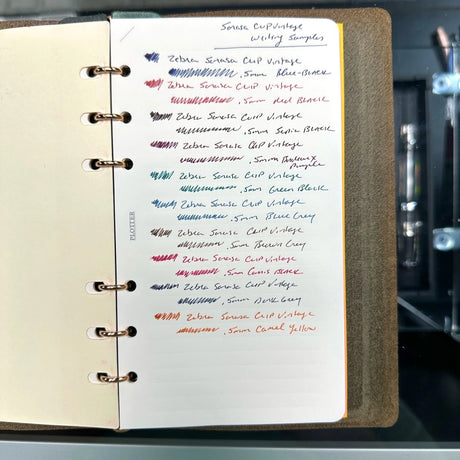 Sarasa Clip Vintage
Writing Samples
Zebra Sarasa Clip Vintage
.5mm Blue-Black
Zebra Sarasa Clip Vintage
.5mm Red Black
Zebra Sarasa Clip Vintage
.5mm Sepia Black
Zebra Sarasa Clip Vintage
.5mm Bordeaux
Purple
Zebra Sarasa Clip Vintage
.5mm Green Black
Zebra Sarasa Clip Vintage
.5mm Blue Grey
Zebra Sarasa Clip Vintage
.5mm Brown Grey
Zebra Sarasa Clip Vintage
.5mm Cassis Black
Zebra Sarasa Clip Vintage
.5mm Dark Grey
Zebra Sarasa Clip Vintage
.5mm Camel Yellow
PLOTTER